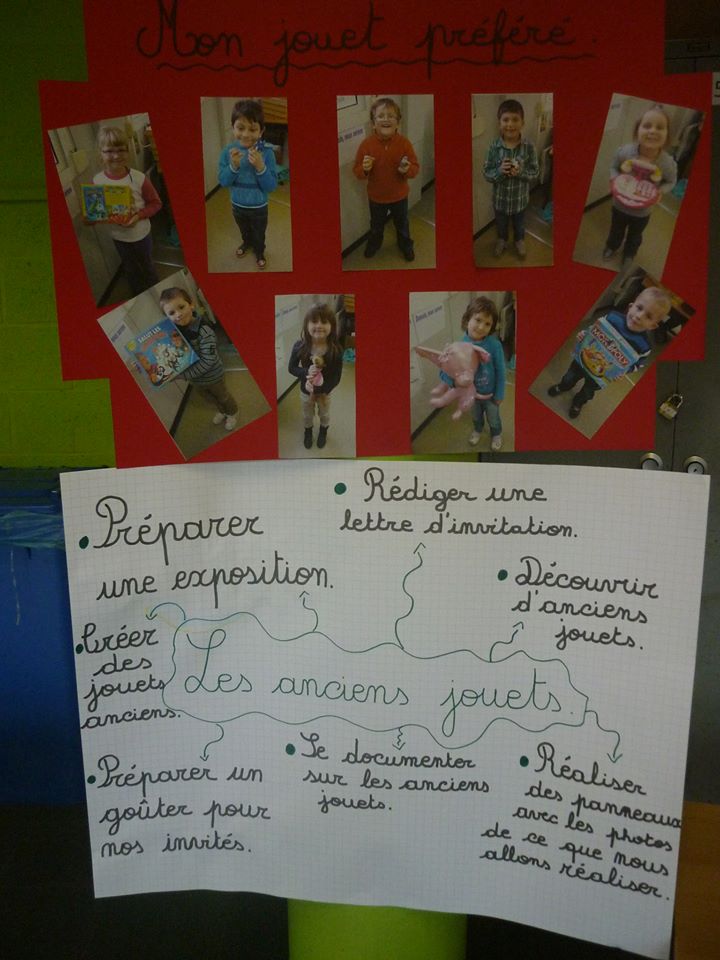 Mon jouet préféré.
MONOPOLY
• Préparer
une exposition.
• Rédiger une
lettre d'invitation.
• Découvrir
d'anciens
jouets.
• Créer
des
jouets
anciens.
Les anciens jouets.
• Préparer un
goûter pour
nos invités.
• Se documenter
sur les anciens
jouets.
• Réaliser
des panneaux
avec les photos
de ce que nous
allons réaliser.